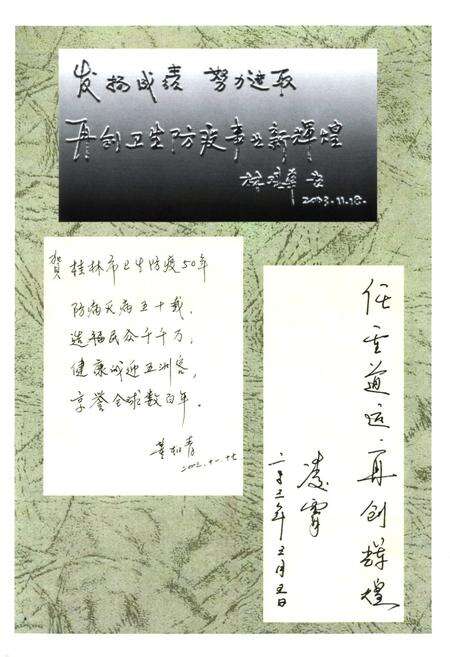 发扬成绩 努力进取
再创卫生防疫事业新辉煌
2003.11.18.
贺
桂林市卫生防疫50年
防病灭病五十载,
造福民众千千万,
健康城迎五洲客,
享誉全球数百年.
任重道远.再创辉煌
凌霄
二〇〇三年五月五日